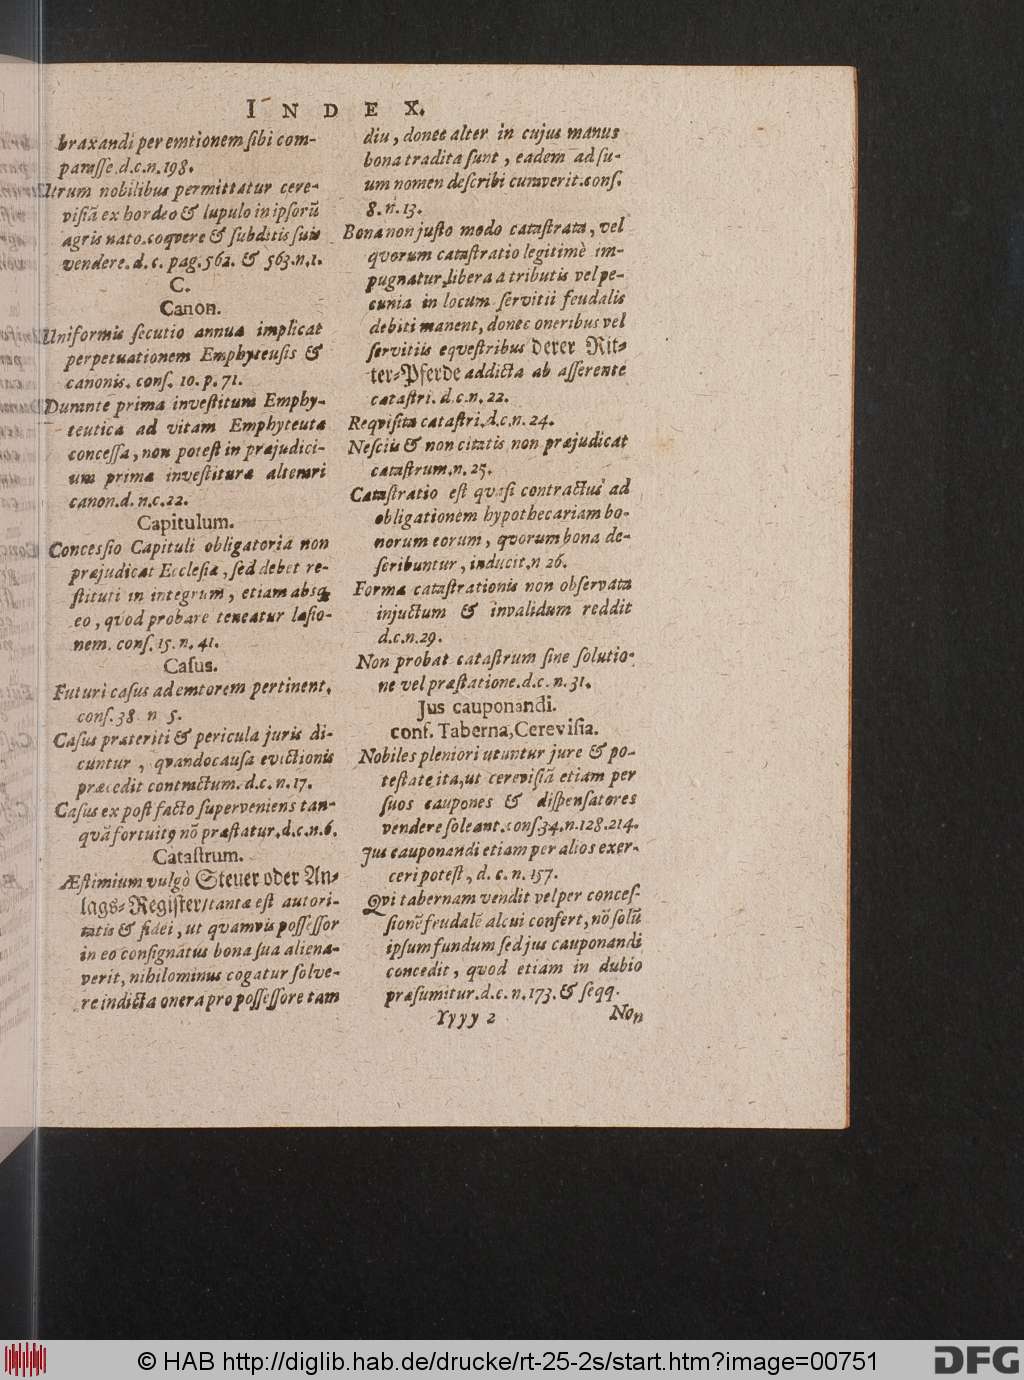 INDEX.
braxandi per emtionem ſibi com-
paraſſe. d. c. n. 198.
Utrum nobilibus permittatur cere-
viſiã ex hordeo & lupulo in ipſorũ
agris nato.coqvere & ſubditis ſuis
vendere. d. c. pag. 562. & 563. n. 1.
C.
Canon.
Uniformis ſecutio annua implicat
perpetuationem Emphyteuſis &
canonis. conſ. 10. p. 71.
Durante prima inveſtitura Emphy-
teutica ad vitam Emphyteuta
conceſſa, non poteſt in præjudici-
um prima inveſtitura alterari
canon. d. n. c. 22.
Capitulum.
Conceſſio Capituli obligatoria non
præjudicat Eccleſiæ, ſed debet re-
ſtituti in integrum, etiam absq́
eo, qvod probare teneatur læſio-
nem. conſ. 15. n. 41.
Caſus.
Futuri caſus ad emtorem pertinent,
conſ. 38 n 5.
Caſus præteriti & pericula juris di-
cuntur, qvando cauſa evictionis
præcedit contractum. d. c. n. 17.
Caſus ex poſt facto ſuperveniens tan-
quã fortuitꝯ nõ præſtatur. d. c. n. 6.
Cataſtrum.
Æſtimium vulgò Steuer oder An-
lags-Regiſter/ tantæ eſt autori-
tatis & fidei, ut quamvis poſſeſſor
in eo conſignatus bona ſua aliena-
verit, nihilominus cogatur ſolve-
re indicta onera pro poſſeſſore tam
diu, donec alter in cujus manus
bona tradita ſunt, eadem ad ſu-
um nomen deſcribi curaverit. conſ.
8. n. 13.
Bona non juſto modo cataſtrata, vel
qvorum cataſtratio legitimè im-
pugnatur, libera a tributis vel pe-
cunia in locum ſervitii feudalis
debiti manent, donec oneribus vel
ſervitiis eqveſtribus derer Rit-
ter-Pferde addicta ab aſſerente
cataſtri. d. c. n. 22.
Reqviſita cataſtri. d. c. n. 24.
Neſciis & non citatis non præjudicat
cataſtrum. n. 25.
Cataſtratio eſt quaſi contractus ad
obligationem hypothecariam bo-
norum eorum, qvorum bona de-
ſcribuntur, inducit. n 26.
Forma cataſtrationis non obſervata
injuctum & invalidum reddit
d. c. n. 29.
Non probat cataſtrum ſine ſolutio-
ne vel præſtatione. d. c. n. 31.
Jus cauponandi.
conf. Taberna, Cereviſia.
Nobiles pleniori utuntur jure & po-
teſtate ita, ut cereviſiã etiam per
ſuos caupones & diſpenſatores
vendere ſoleant. conſ 34. n. 128. 214.
Jus cauponandi etiam per alios exer-
ceri poteſt, d. c. n. 157.
Qvi tabernam vendit vel per conceſ-
ſionẽ frudalẽ alcui confert, nõ ſolũ
ipſum fundum ſed jus cauponandi
concedit, quod etiam in dubio
præſumitur. d. c. n. 173. & ſeqq.
Yyyy 2
Non
© HAB http://diglib.hab.de/drucke/rt-25-2s/start.htm?image=00751
DFG